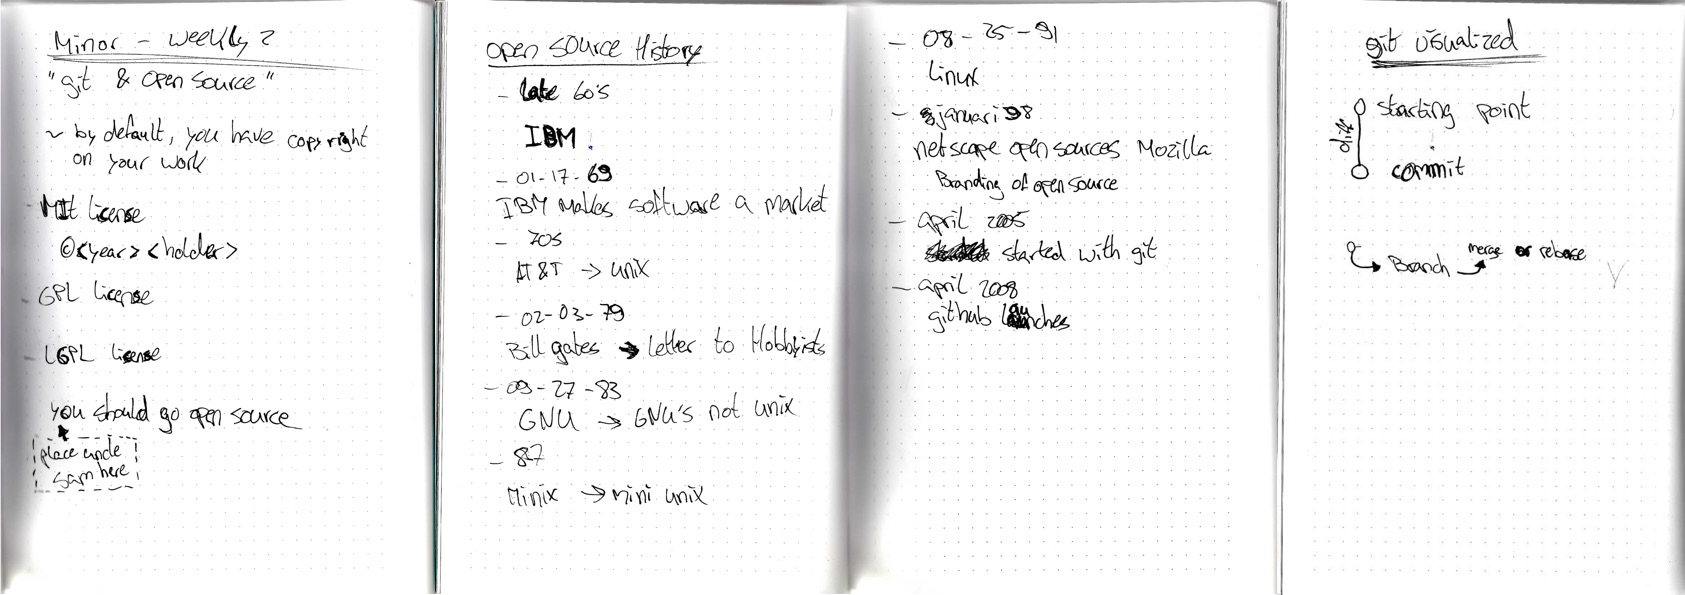 Minor - weekly 2
"git & open source"
~ by default, you have copyright
on your work
- MIt license
©<year> <holder>
- GPL license
- LGPL license
you should go open source
place uncle
sam here
open source History
- late 60's
IBM
- 01-17-69
IBM makes software a market
- 70s
AT&T → unix
- 02-03-79
Bill gates → Letter to Hobbyists
- 09-27-83
GNU → GNU's not unix
- 87
Minix → mini unix
- 08-25-91
Linux
- januari 98
netscape open sources Mozilla
Branding of open source
- april 2005
started with git
- april 2008
github launches
git visualized
starting point
commit
Branch
merge or rebase